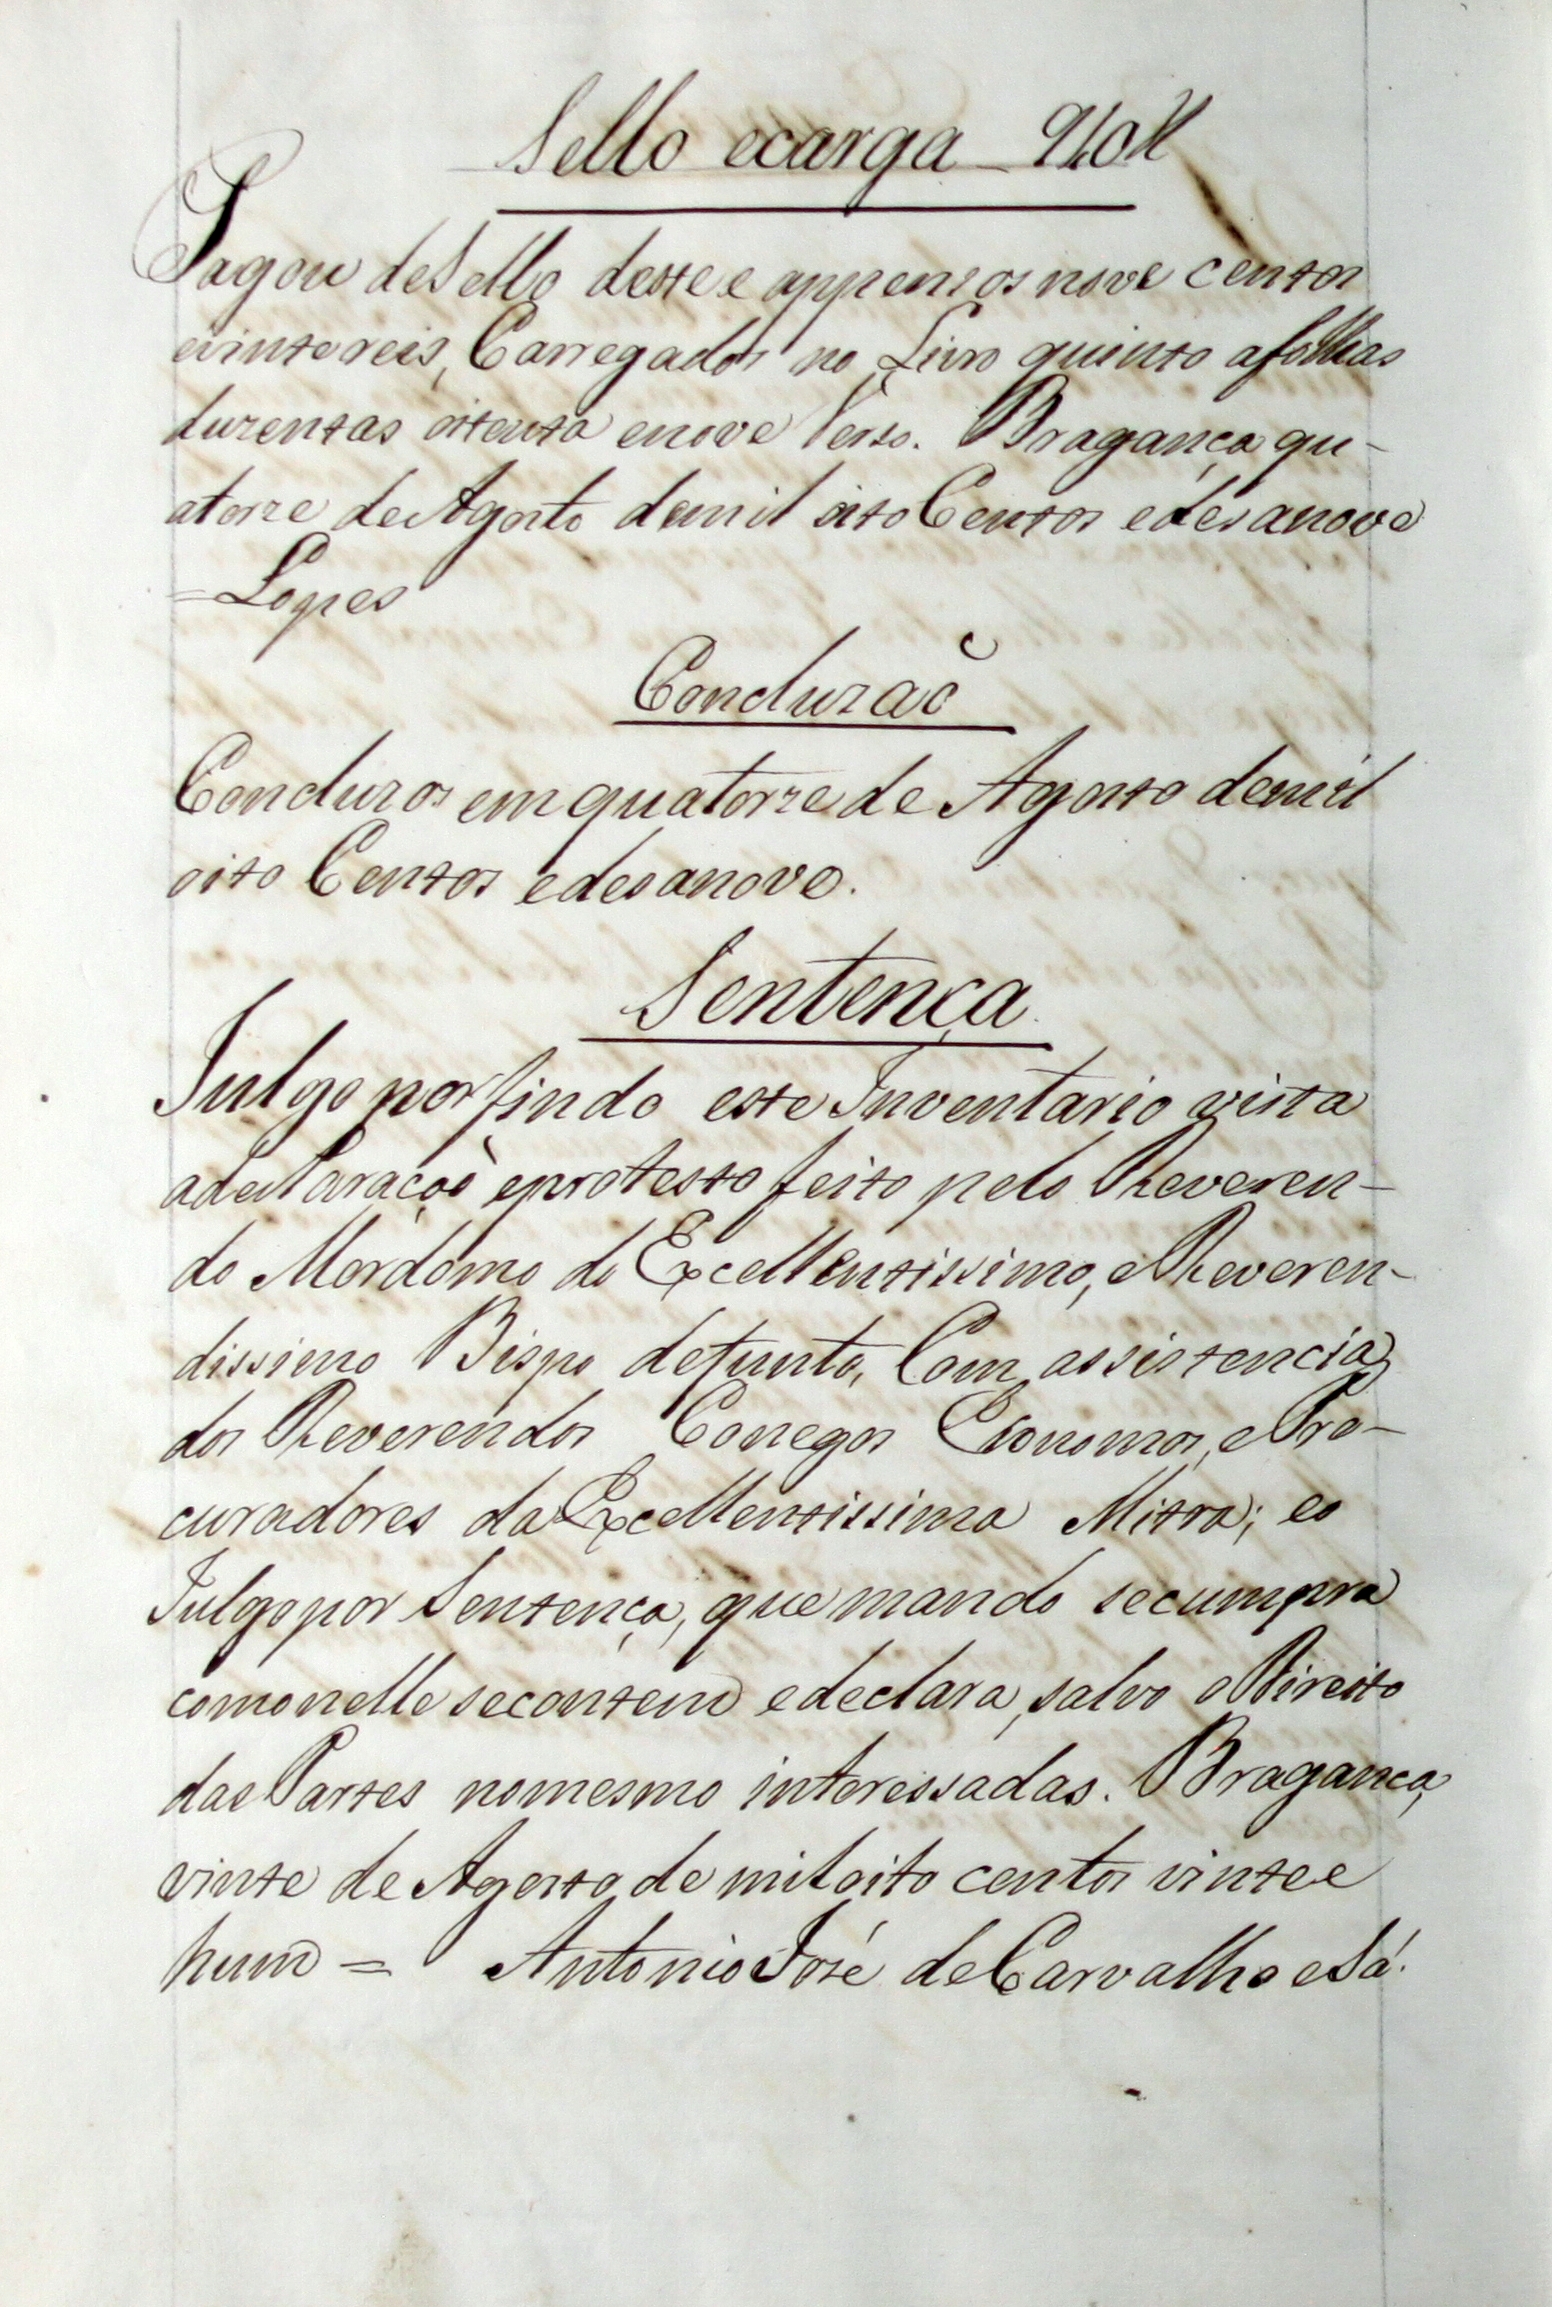 Sello ecarga – 940
Pagou deSello deste e appensos nove centos
evinte reis, Carregados no Livro quinto afolhas
duzentas oitenta enove Verso. Bragança qu-
atorze de Agosto demil oito Centos edesanove
= Lopes
Conduzaõ
Conduzos em quatorze de Agosto demil
oito Centos edesanove.
Sentença
Julgo por findo este Inventario vista
adeclaraçoõ eprotesto feito pelo Reveren-
do Mordomo do Excellentissimo, e Reveren-
dissimo Bispo defunto, Com assistencia
dos Reverendos Conegos Economos, e Pro-
curadores da Excellentissima Mitra; eo
Julgo por Sentença, que mando secumpra
como nelle secontem edeclara, salvo o Direito
das Partes nomesmo interessadas. Bragança,
vinte de Agosto de mil oito centos vinte e
hum = Antonio José de Carvalho e Sá.